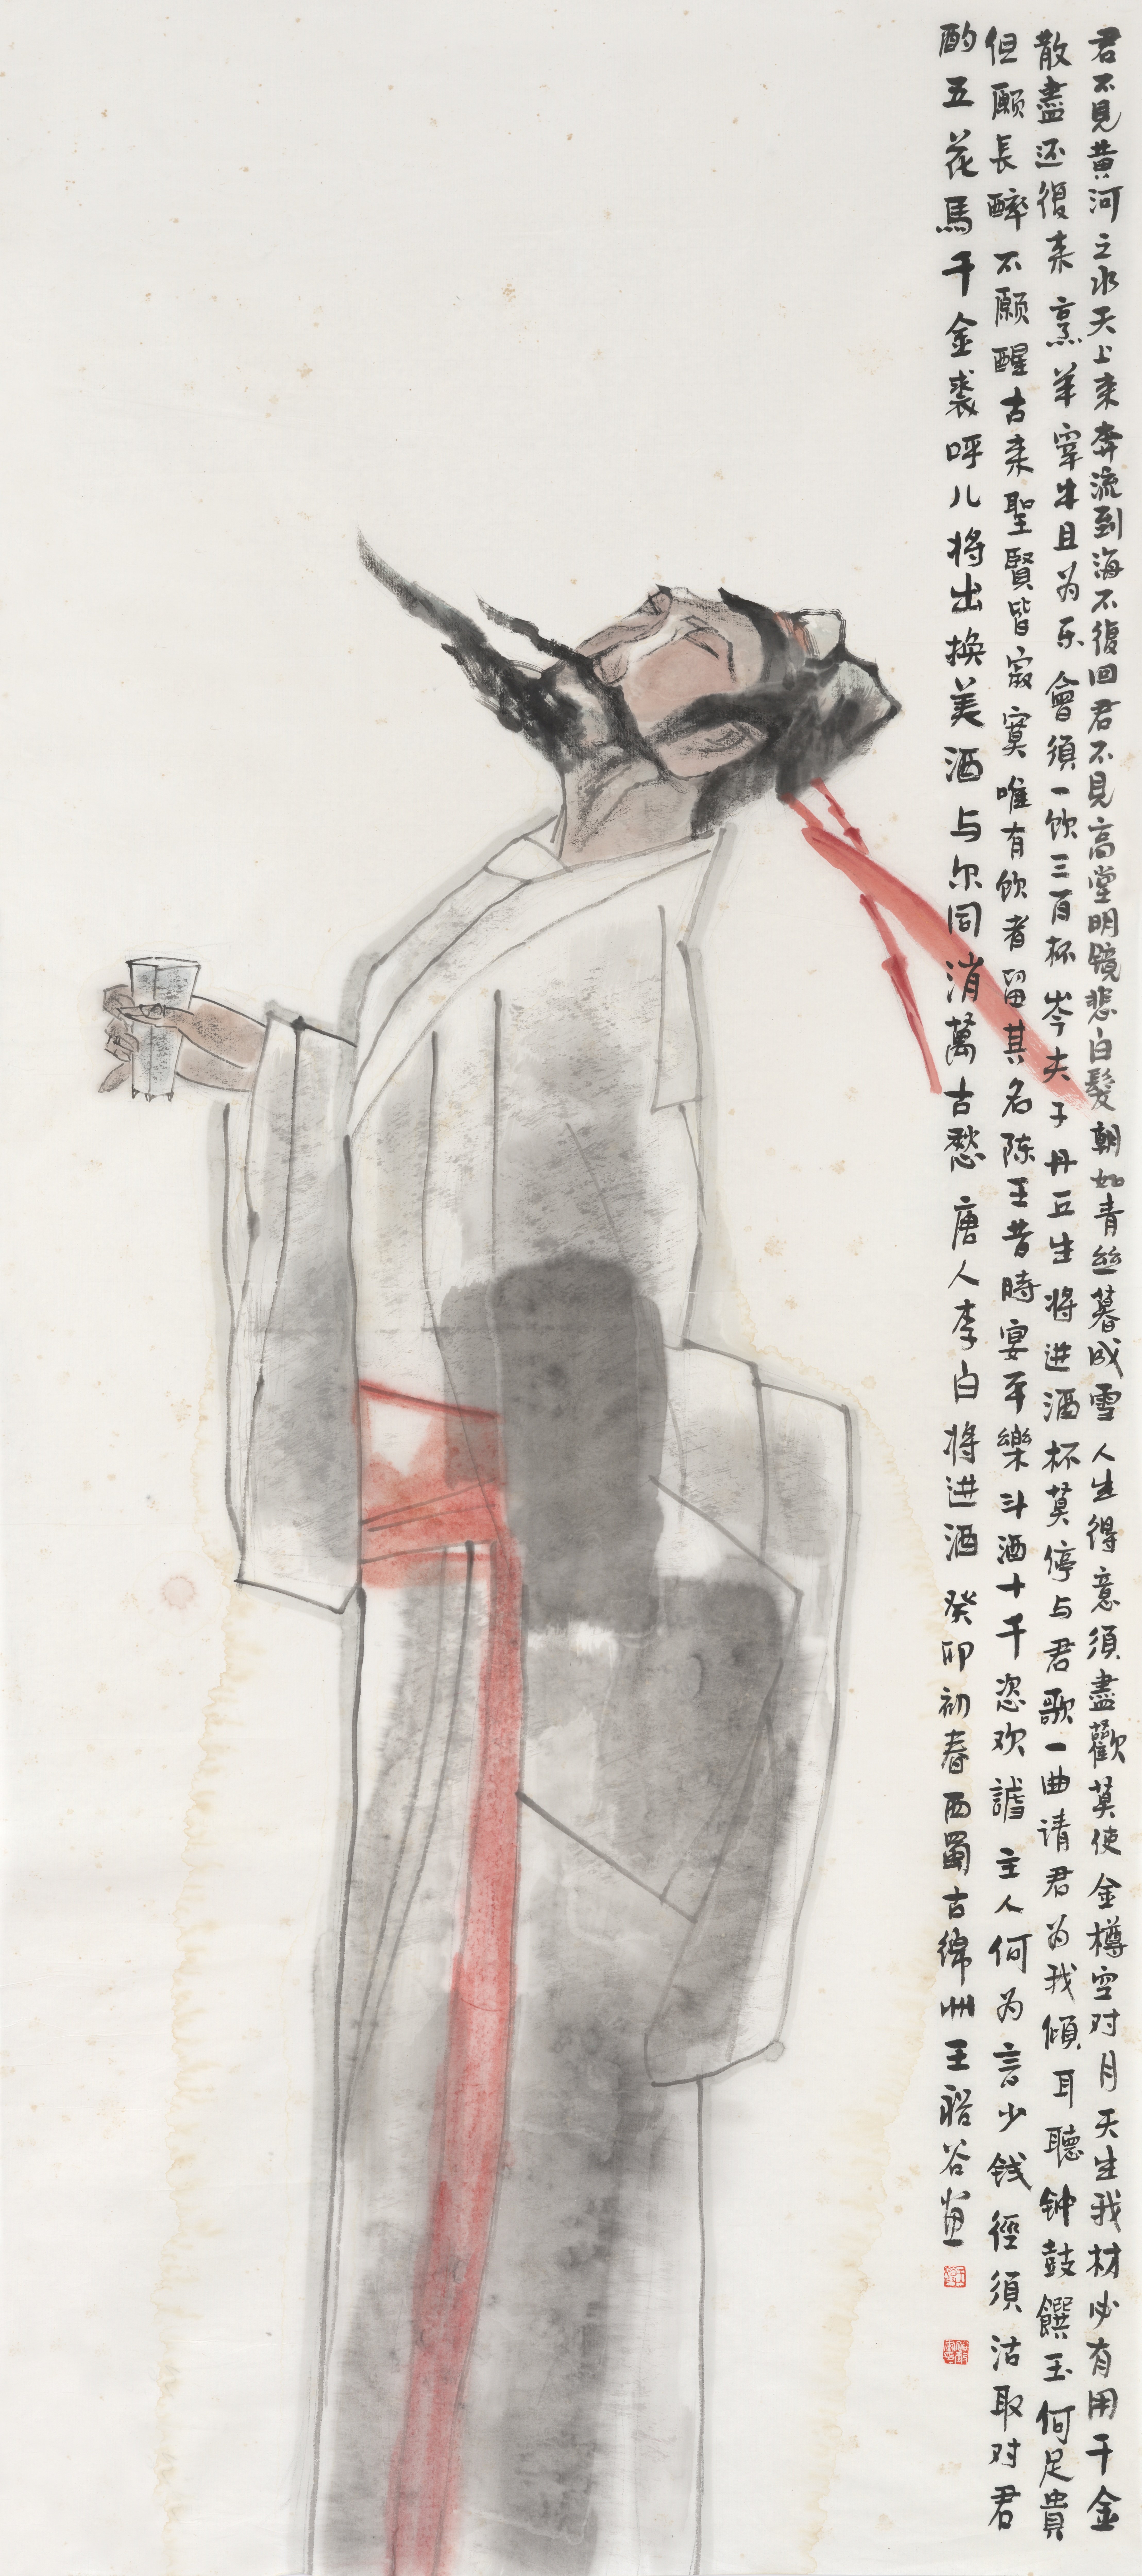 君不見黄河之水天上来奔流到海不復回君不見高堂明镜悲白髮朝如青絲暮成雪人生得意須盡歡莫使金樽空对月天生我材必有用千金
散盡还復来烹羊宰牛且为乐會須一饮三百杯岑夫子丹丘生将进酒杯莫停与君歌一曲请君为我倾耳聽钟鼓饌玉何足貴
但願長醉不願醒古来聖賢皆寂寞唯有饮者留其名陈王昔時宴平樂斗酒十千恣欢謔主人何为言少钱徑須沽取对君
酌五花馬千金裘呼儿将出换美酒与尔同消萬古愁 唐人李白将进酒 癸卯初春西蜀古绵州王谷畫